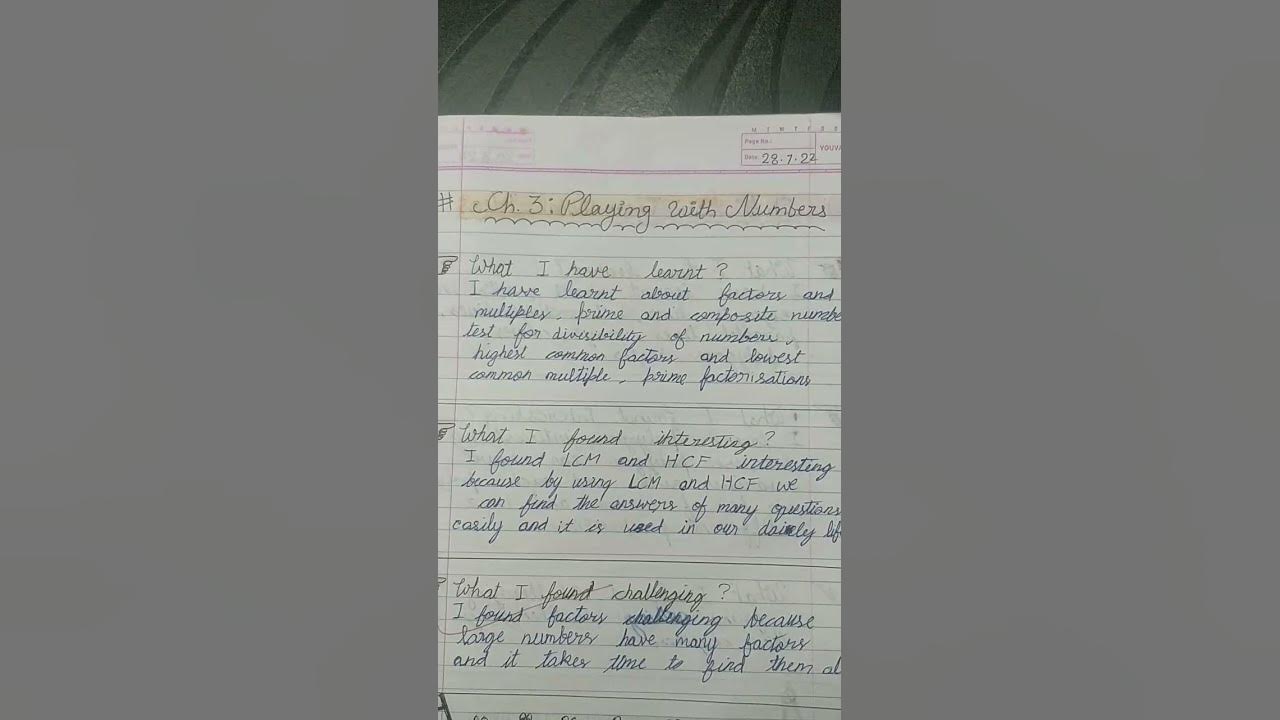 MINTFOO
Page No.:
YOUVA
Date: 28.7.22
# Ch. 3: Playing with Numbers
What I have learnt?
I have learnt about factors and
multiples, prime and composite numbe
test for divisibility of numbers,
highest common factors and lowest
common multiple, prime factorisations
What I found interesting?
I found LCM and HCF interesting
because by using LCM and HCF we
can find the answers of many questions
easily and it is used in our daiely lif
What I found challenging?
I found factors challenging because
large numbers have many factors
and it takes time to find them al